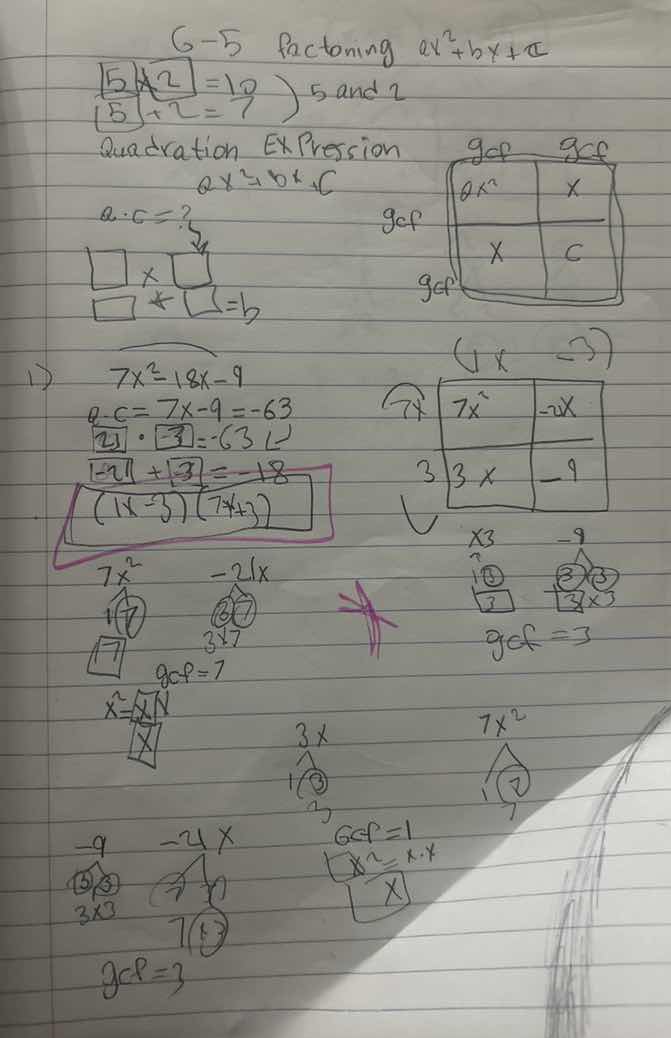 6-5 factoring ax²+bx+c
5 x 2 = 10
5 + 2 = 7 ) 5 and 2
Quadration Expression
ax²+bx+c
a·c=?
x
+ =b
gcf gcf
gcf ax² x
gcf x c
1) 7x²-18x-9
a·c= 7x-9=-63
21 · -3 =-63
-21 + -3 = -18
(1x-3)(7x+3)
(1x -3)
7x 7x² -21x
3 3x -9
7x² -21x
1 7 3 7
7 3x7
gcf=7
x²=x
x
x3 -9
1 3 3 3
3 3 x3
gcf =3
3x 7x²
1 3 1 7
3 7
Gcf=1
x²=x·x
x
-9 -21x
3 3
3x3 7 x3
gcf=3